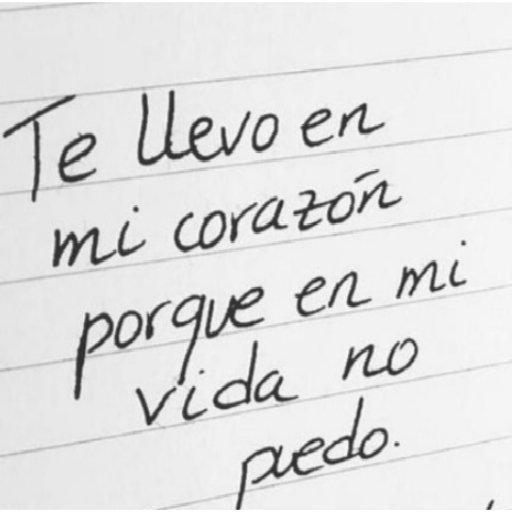 Te llevo en
mi corazón
porque en mi
vida no
puedo.